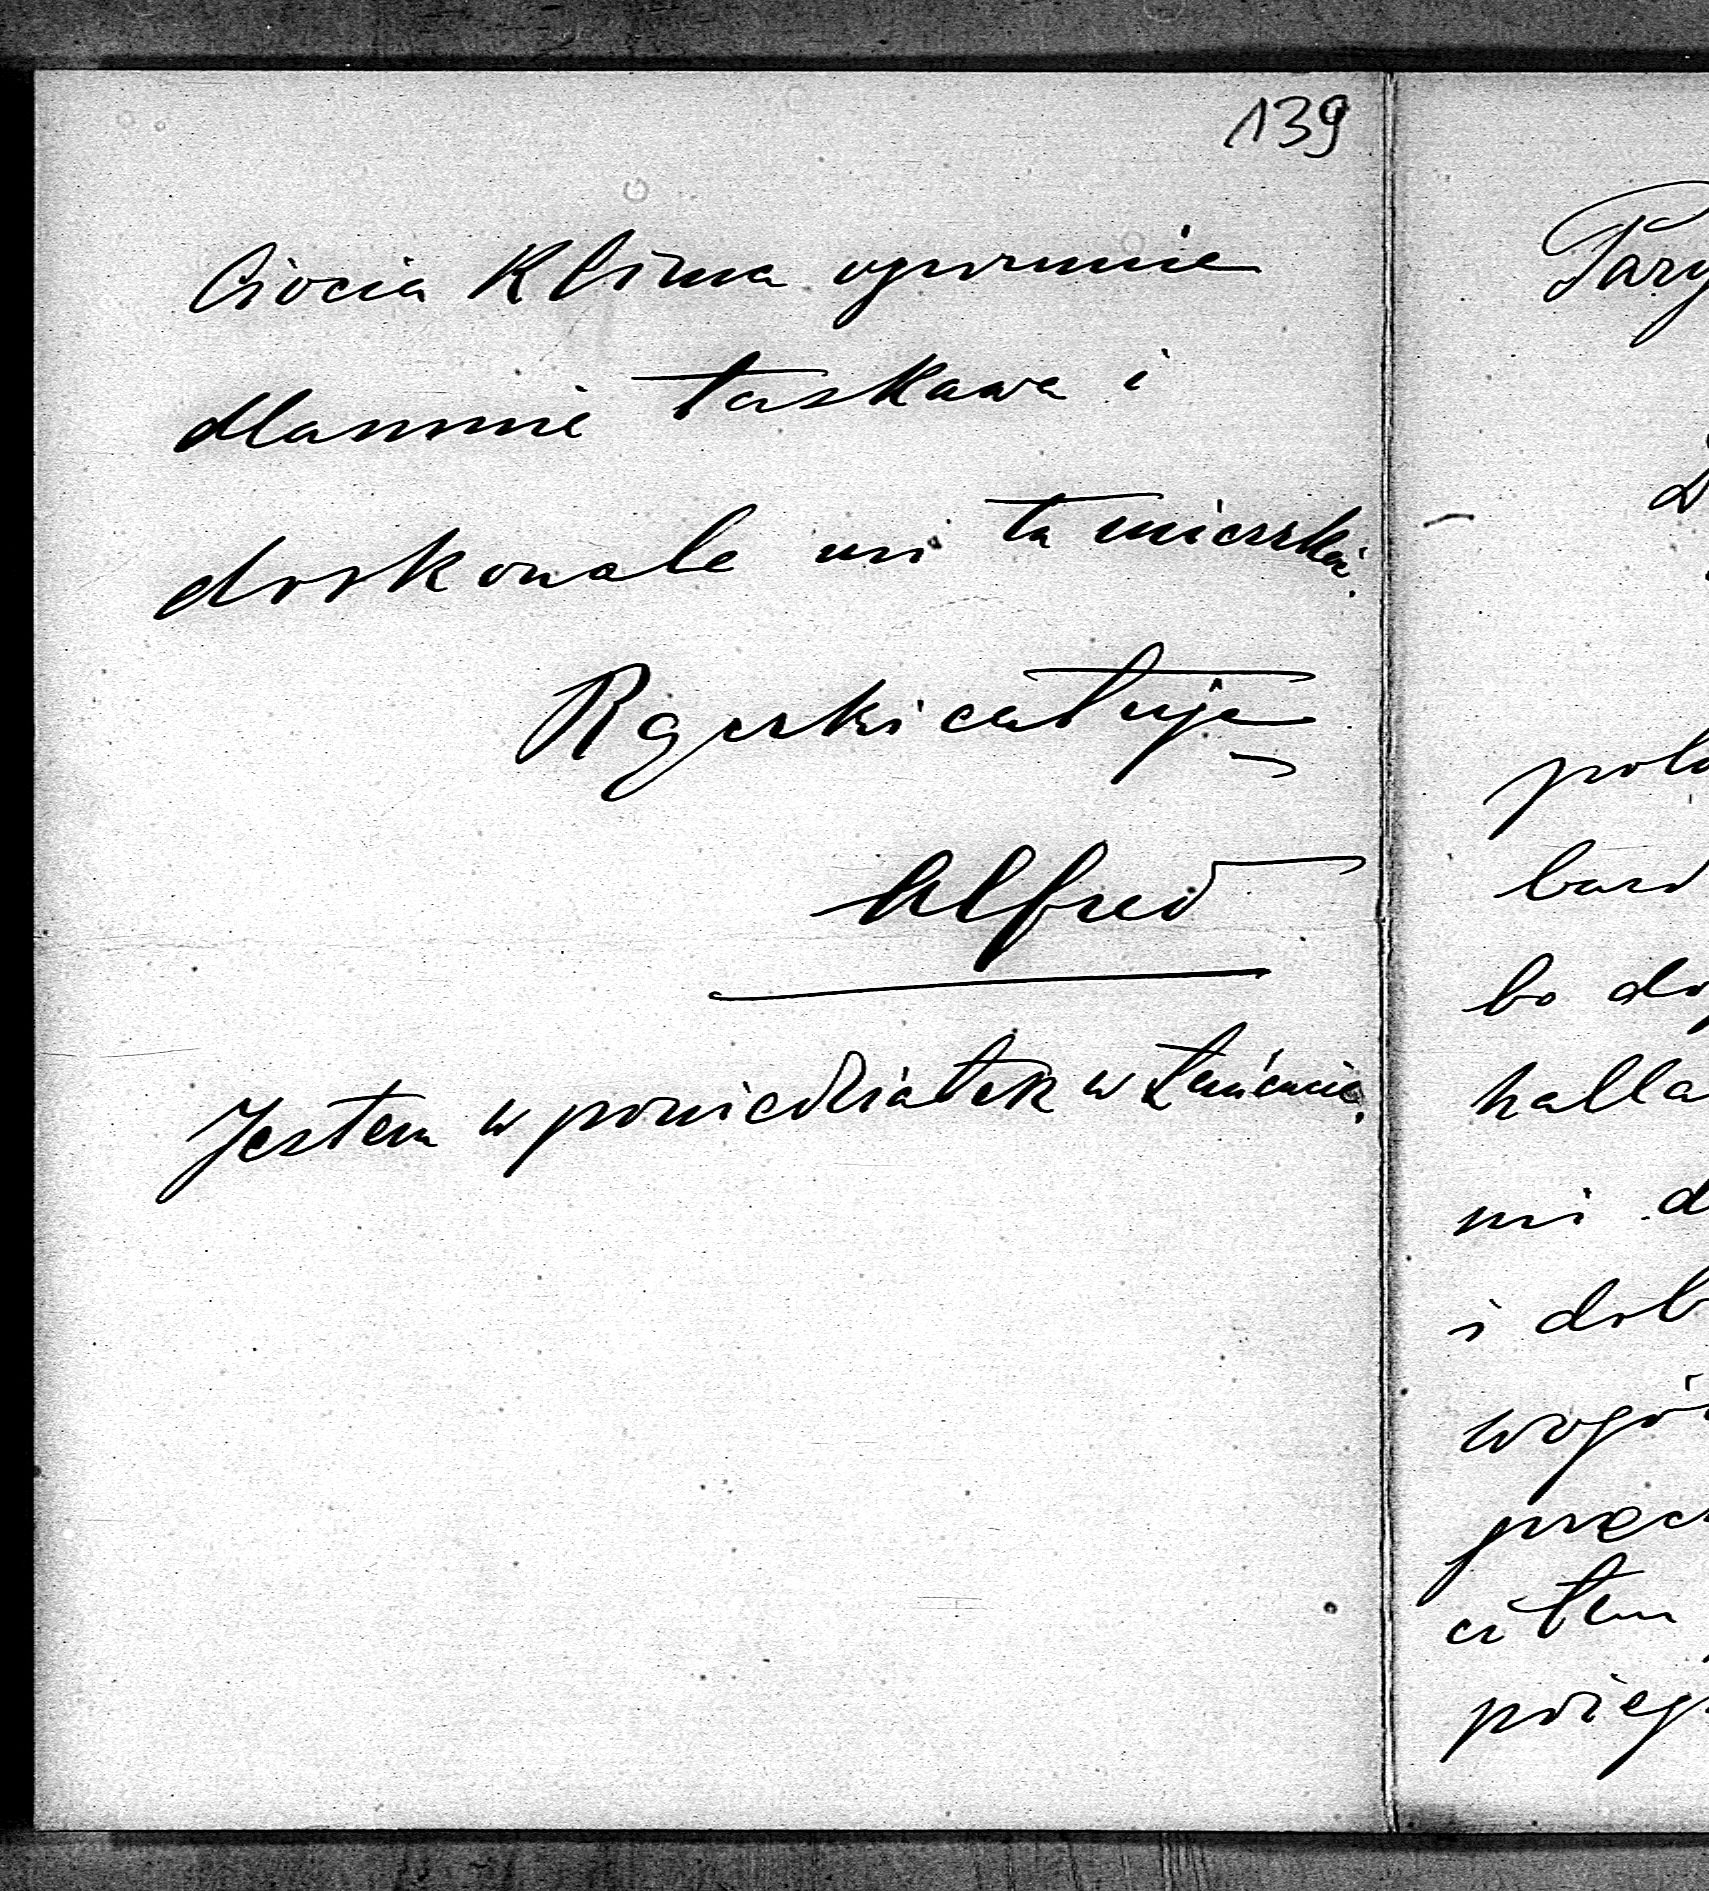 139
Ciocia Klima ogromnie
dlamnie łaskawa i
doskonale mi tu mieszkać.
Rączki całuję
Alfred
Jestem w poniedziałek w Łańcucie.
Pary
polo
bard
bo do
halla
mi d
i dob
wogó
citem